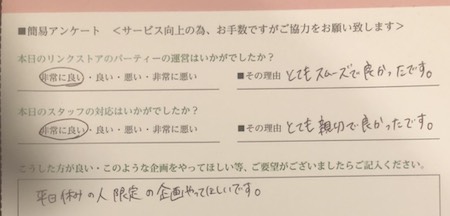 ■簡易アンケート ＜サービス向上の為、お手数ですがご協力をお願い致します＞
本日のリンクストアのパーティーの運営はいかがでしたか？
非常に良い・良い・悪い・非常に悪い ■その理由 とてもスムーズで良かったです。
本日のスタッフの対応はいかがでしたか？
非常に良い・良い・悪い・非常に悪い ■その理由 とても親切で良かったです。
こうした方が良い・このような企画をやってほしい等、ご要望がございましたらご記入ください。
平日休みの人限定の企画やってほしいです。